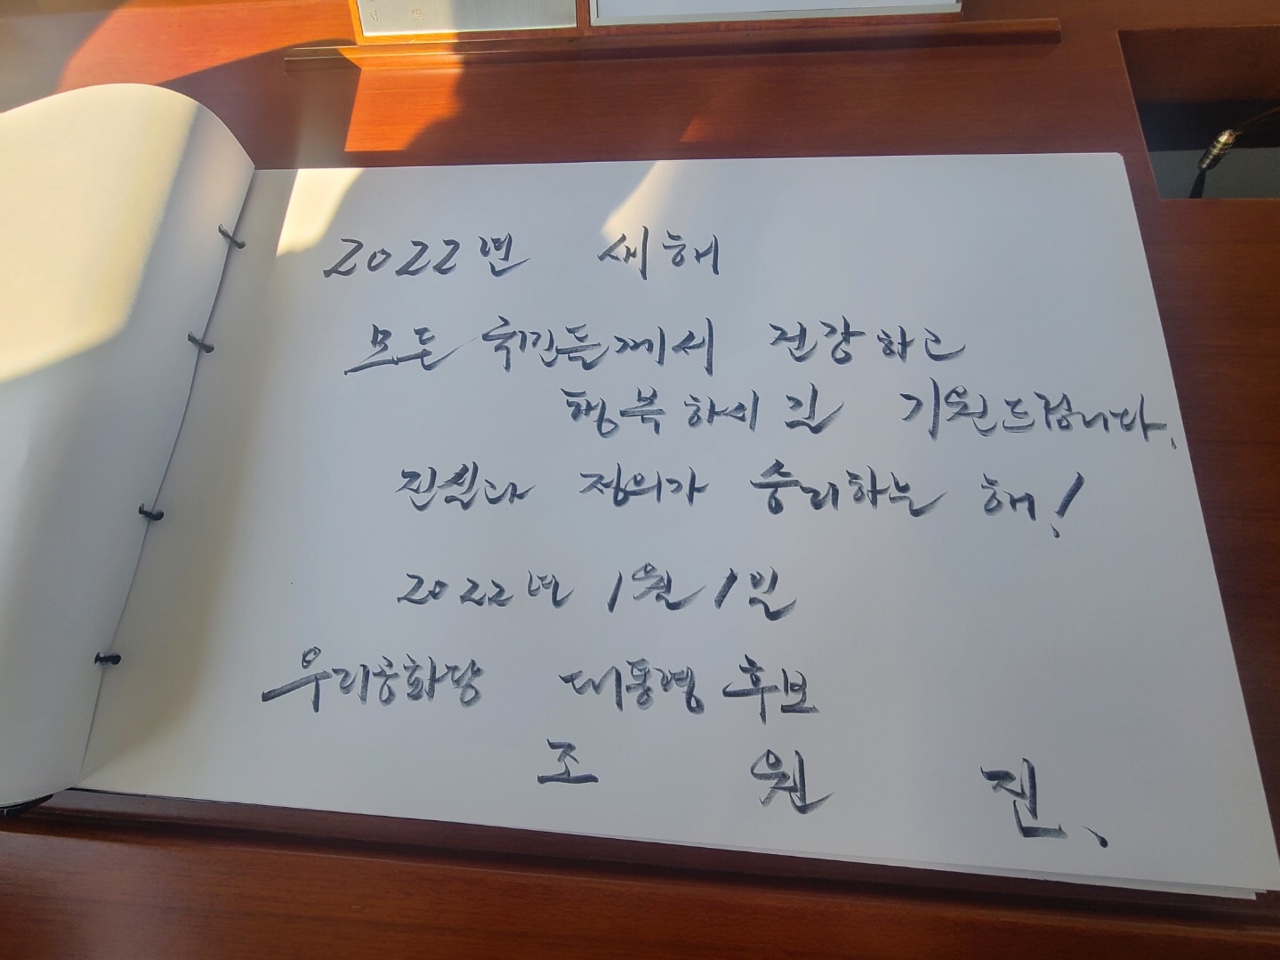 2022년 새해
모든 국민들께서 건강하고
행복하시길 기원드립니다.
진실과 정의가 승리하는 해!
2022년 1월 1일
우리공화당 대통령 후보
조 원 진.